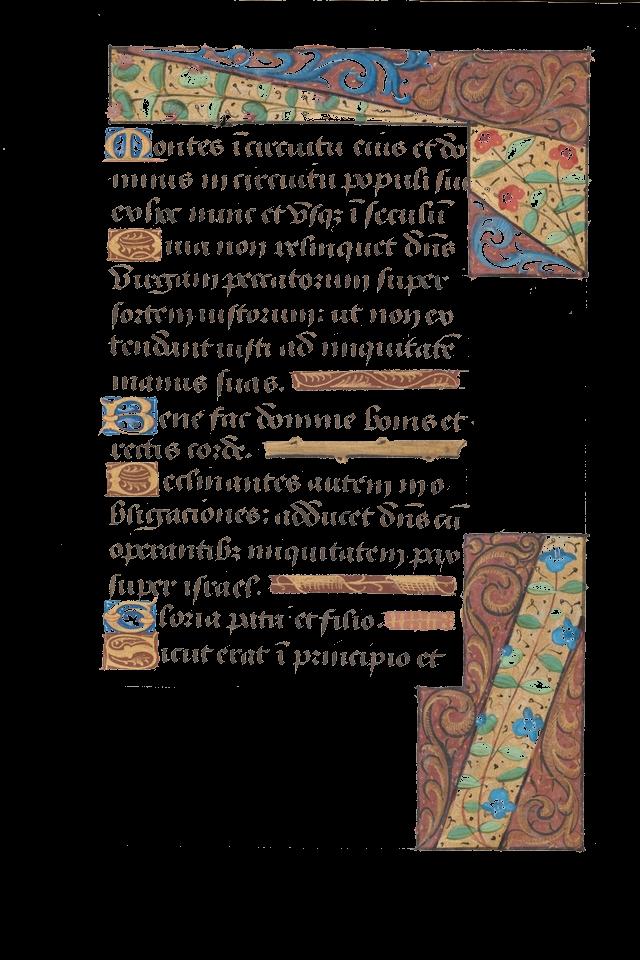 Montes ī circuitu eius et do
minus in circuitu populi sui
ex hoc nunc et vsqꝫ ī seculū
Quia non relinquet dñs
Virgam peccatorum super
sortem iustorum: ut non ex
tendant iusti ad iniquitatē
manus suas.
Bene fac domine bonis et
rectis corde.
Declinantes autem in o
bligationes: adducet dñs cū
operantibꝫ iniquitatem pax
super israel.
Gloria patri et filio.
Sicut erat ī principio et